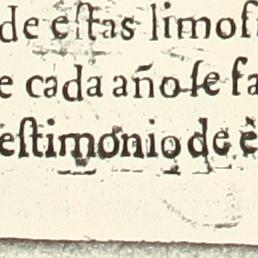 de eſtas limoſ
e cada año ſe fa
eſtimonio de è